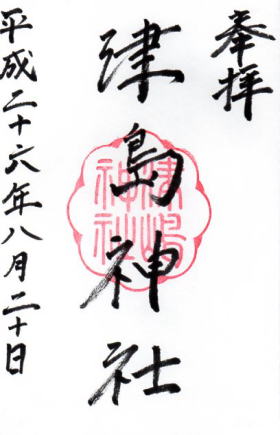 奉拝
津島神社
津嶋
神社
平成二十六年八月二十日